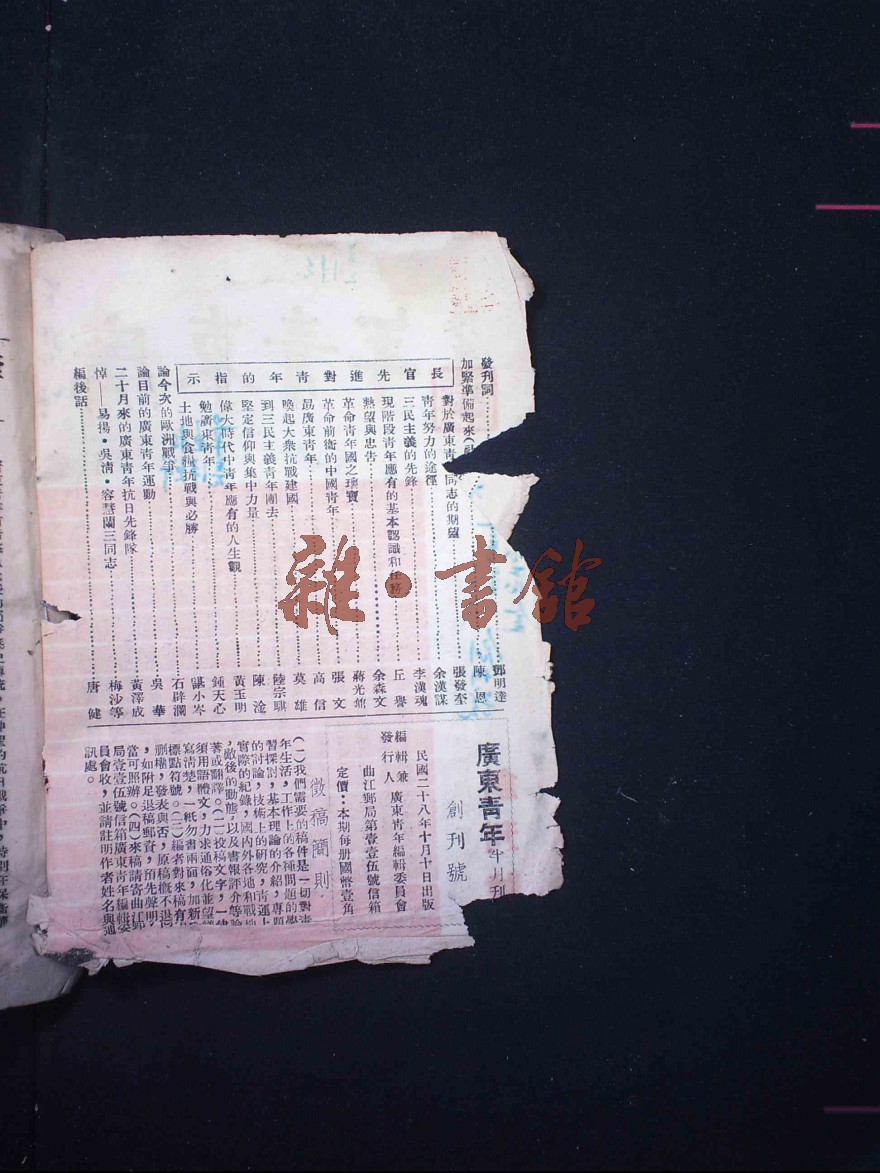 發刊詞……鄧明達
加緊準備起來……陳恩
長官先進對青年的指示
對於廣東青　同志的期望……張發奎
青年努力的途徑……余漢謀
三民主義的先鋒……李漢魂
現階段青年應有的基本認識和任務……丘譽
熱望與忠告……余森文
革命青年國之瓌寶……蔣光鼐
革命前衛的中國青年……張文
勗廣東青年……高信
喚起大衆抗戰建國……莫雄
到三民主義青年團去……陸宗騏
堅定信仰與集中力量……陳淦
偉大時代中青年應有的人生觀……黃玉明
勉廣東青年……鍾天心
土地與食糧抗戰與必勝……諶小岑
論今次的歐洲戰爭……石辟瀾
論目前的廣東青年運動……吳華
二十月來的廣東青年抗日先鋒隊……黃澤成
悼——易揚·吳清·容慧蘭三同志……梅沙等
編後話……唐健
廣東青年 半月刊
創刊號
民國二十八年十月十日出版
編輯兼發行人 廣東青年編輯委員會
曲江郵局第壹壹伍號信箱
定價：本期每册國幣壹角
徵稿簡則
(一)我們需要的稿件是一切對青
年生活，工作上的各種問題的學
習探討，基本理論的介紹，專題
的討論，技術上的研究，青運上
實際的紀錄，國內外各地和戰地
，敵後的動態，以及書報評介等論
著或翻譯。(二)投稿文字，一律
須用語體文，力求通俗化並望謄
寫清楚，一紙勿書兩面，加新式
標點符號。(三)編者對來稿有
删權，發表與否，原稿槪不退還
，如附足退稿郵資，預先聲明，
當可照辦。(四)來稿請寄曲江郵
局壹壹伍號信箱廣東青年編輯委
員會收，並請註明作者姓名與通
訊處。
雜·書館